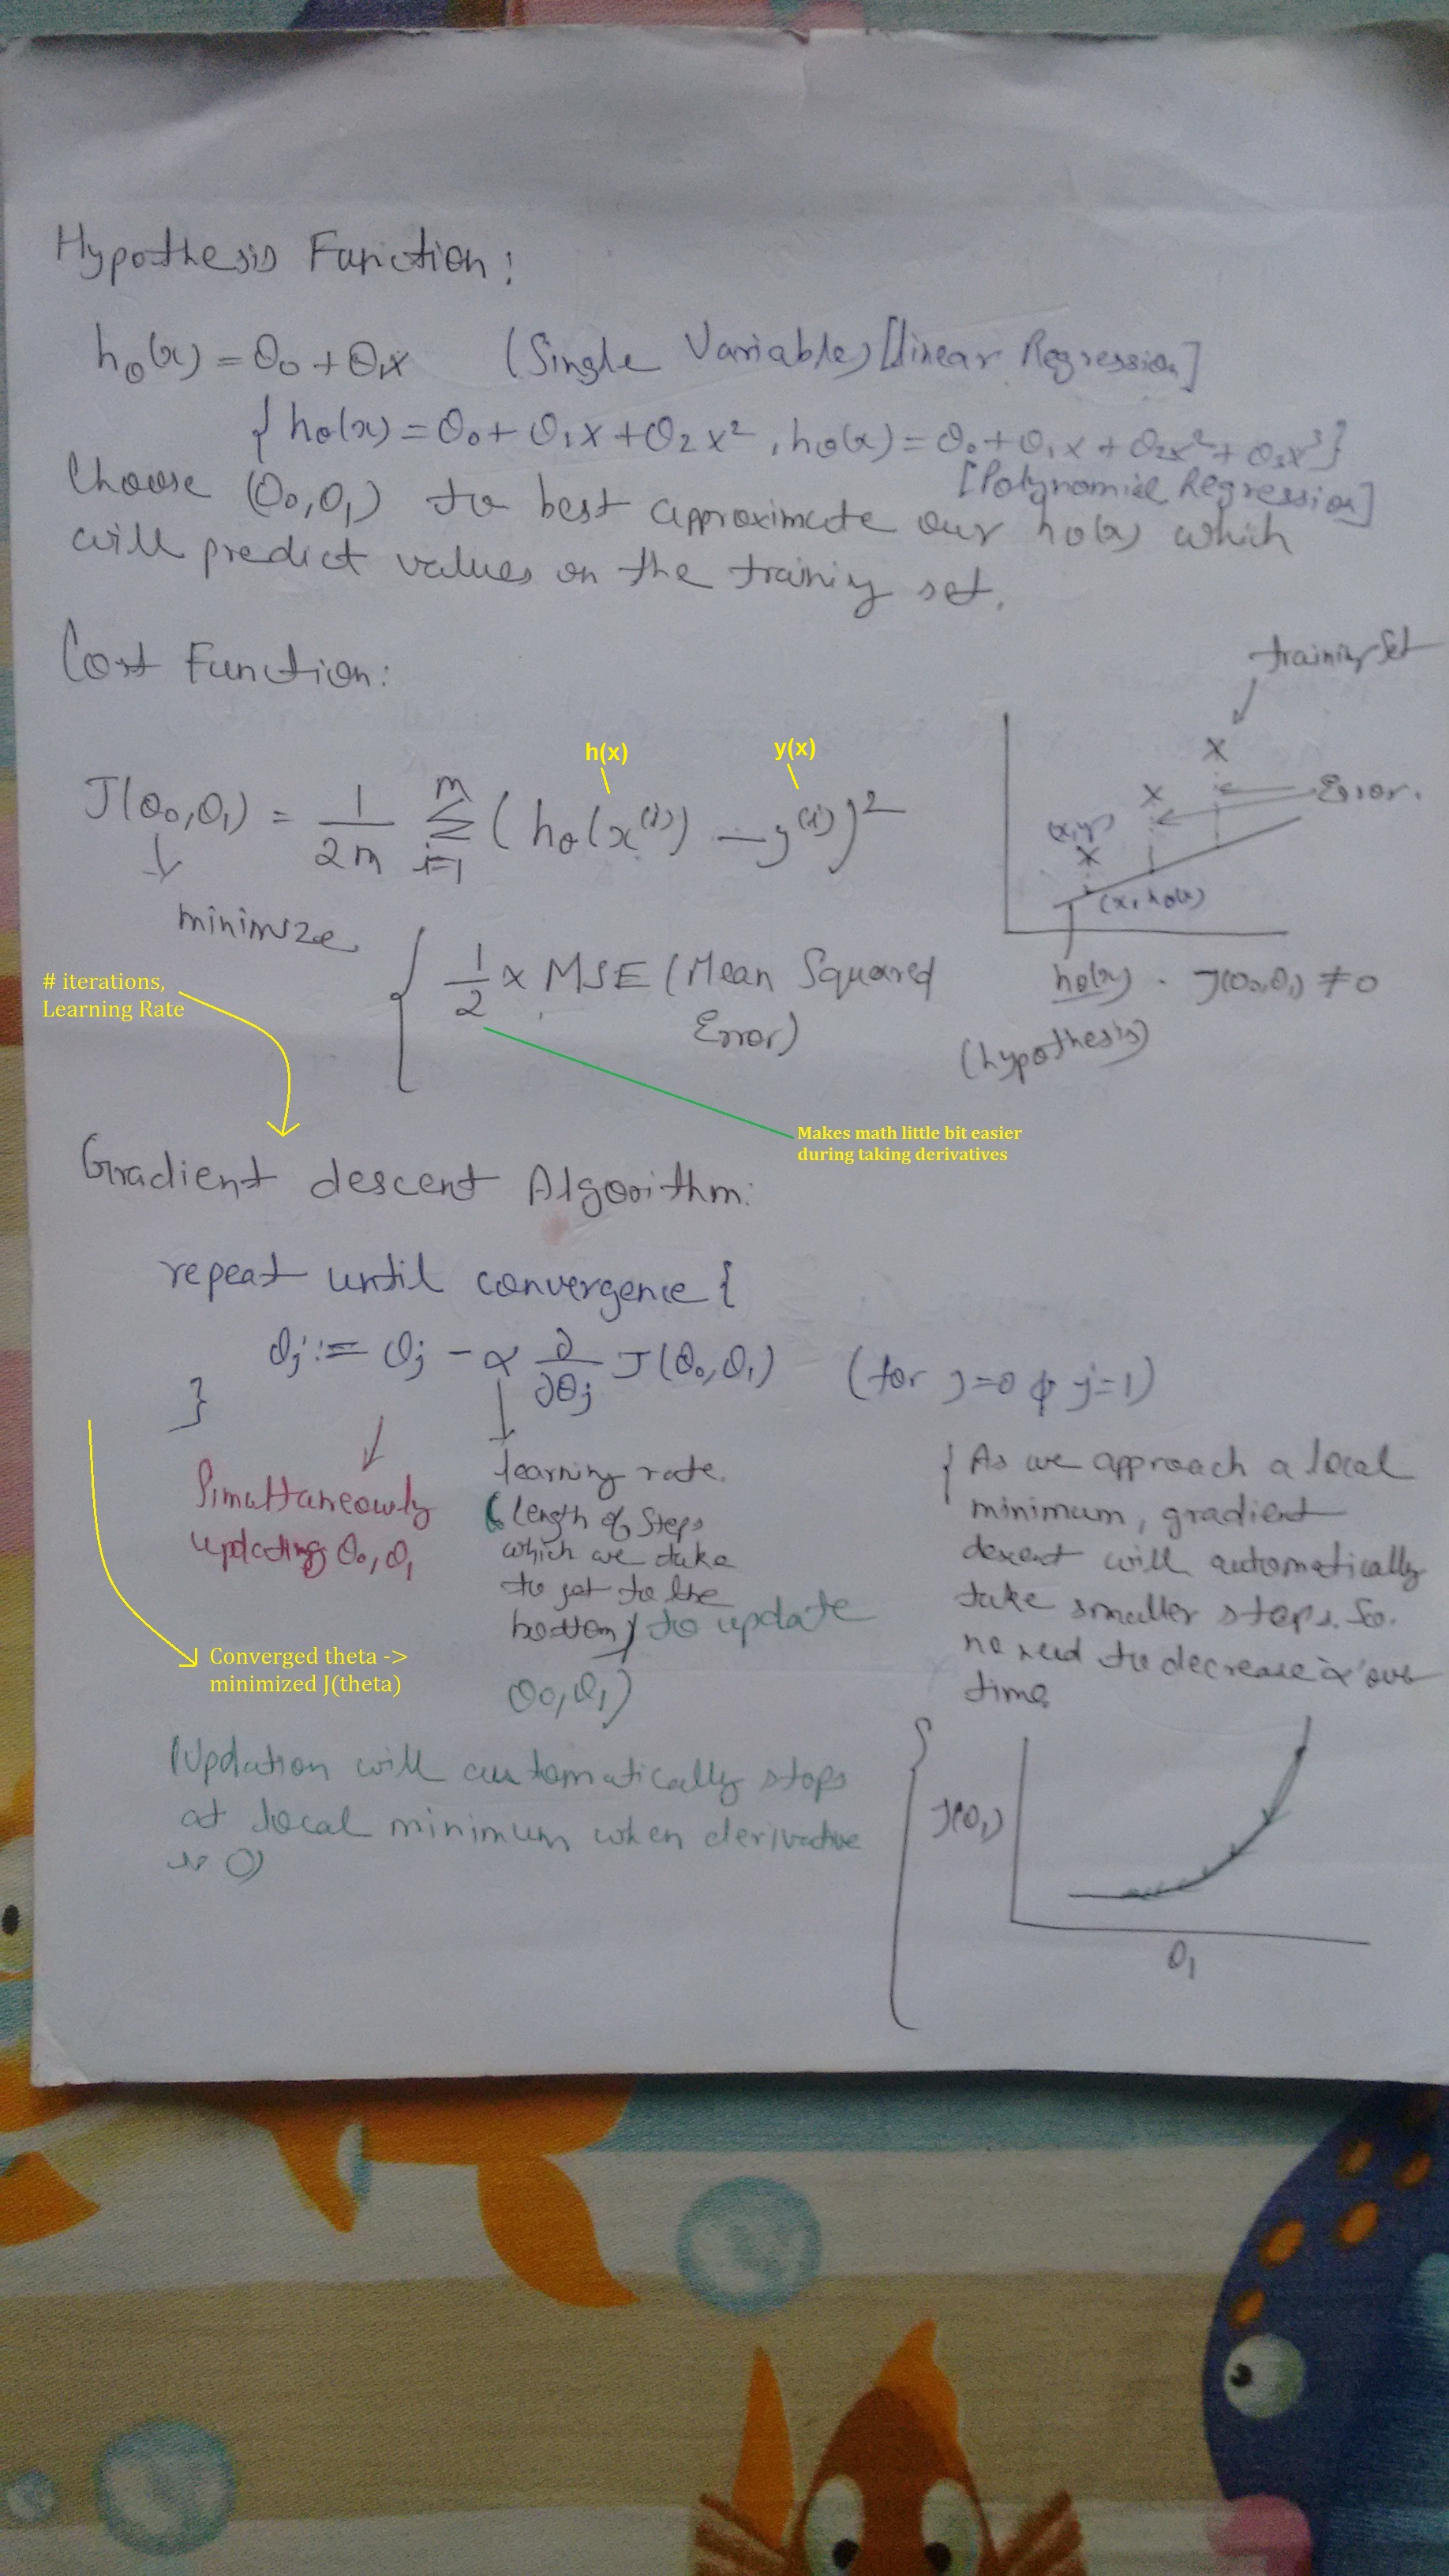 Hypothesis Function:
hθ(x) = θ0 + θ1x (Single Variable) [linear Regression]
{ hθ(x) = θ0 + θ1x + θ2x², hθ(x) = θ0 + θ1x + θ2x² + θ3x³ }
[Polynomial Regression]
Choose (θ0, θ1) to best approximate our hθ(x) which
will predict values on the training set.
Cost Function:
training set
h(x) y(x)
J(θ0, θ1) = 1/2m Σ i=1 m ( hθ(x⁽ⁱ⁾) - y⁽ⁱ⁾ )²
Error.
(x, y)
(x, hθ(x))
minimize
{ 1/2 x MSE (Mean Squared
Error)
hθ(x) . J(θ0, θ1) ≠ 0
(hypothesis)
# iterations,
Learning Rate
Makes math little bit easier
during taking derivatives
Gradient descent Algorithm:
repeat until convergence {
θj := θj - α ∂/∂θj J(θ0, θ1) (for j=0 & j=1)
}
Simultaneously
updating θ0, θ1
learning rate.
( Length of steps
which we take
to get to the
bottom) to update
θ0, θ1)
{ As we approach a local
minimum, gradient
descent will automatically
take smaller steps. So
no need to decrease α over
time
Converged theta ->
minimized J(theta)
(Updation will automatically stops
at local minimum when derivative
is 0)
J(θ1)
θ1